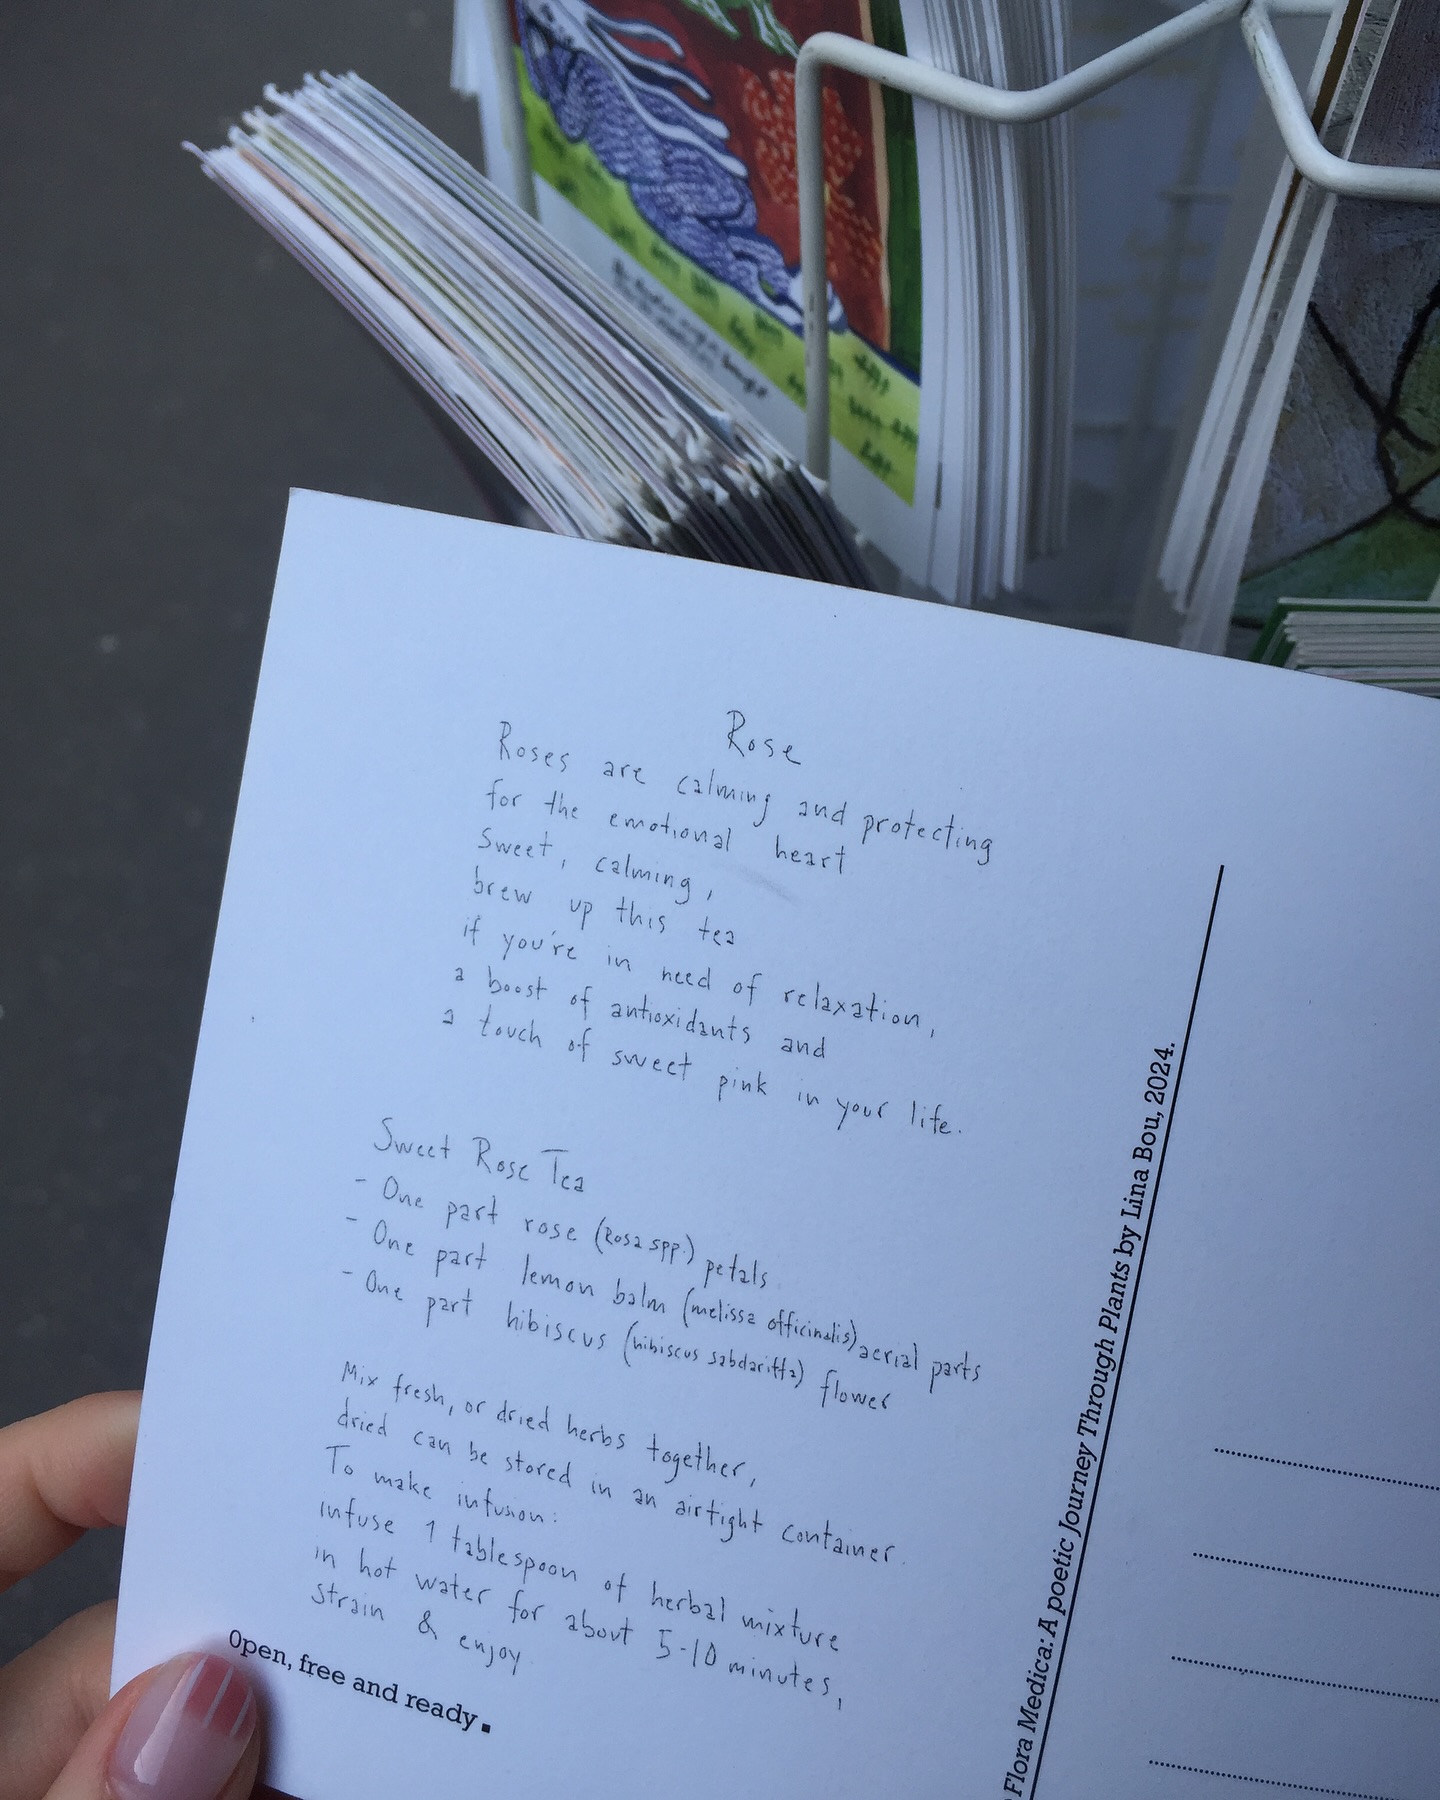 Rose
Roses are calming and protecting
for the emotional heart
Sweet, calming,
brew up this tea
if you're in need of relaxation,
a boost of antioxidants and
a touch of sweet pink in your life.
Sweet Rose Tea
- One part rose (Rosa spp.) petals
- One part lemon balm (melissa officinalis) aerial parts
- One part hibiscus (hibiscus sabdariffa) flower
Mix fresh, or dried herbs together,
dried can be stored in an airtight container.
To make infusion:
infuse 1 tablespoon of herbal mixture
in hot water for about 5-10 minutes,
strain & enjoy
Open, free and ready.
Flora Medica: A poetic Journey Through Plants by Lina Bou, 2024.